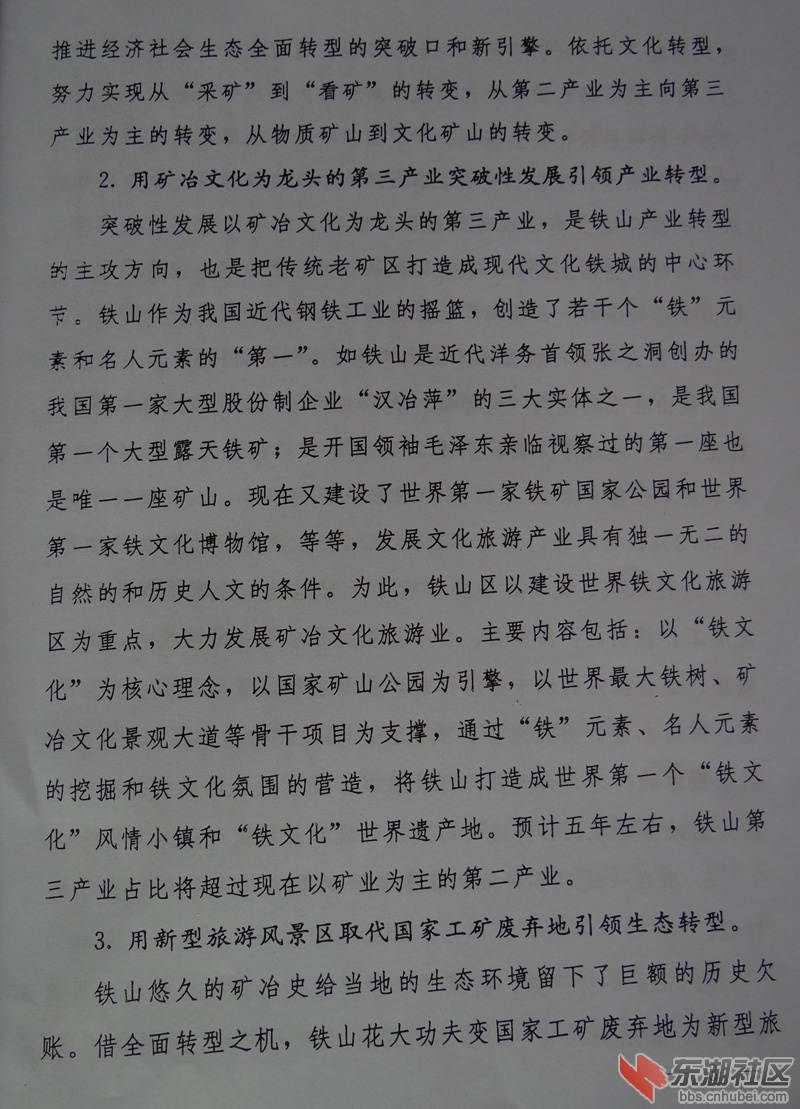 推进经济社会生态全面转型的突破口和新引擎。依托文化转型，
努力实现从“采矿”到“看矿”的转变，从第二产业为主向第三
产业为主的转变，从物质矿山到文化矿山的转变。
2. 用矿冶文化为龙头的第三产业突破性发展引领产业转型。
突破性发展以矿冶文化为龙头的第三产业，是铁山产业转型
的主攻方向，也是把传统老矿区打造成现代文化铁城的中心环
节。铁山作为我国近代钢铁工业的摇篮，创造了若干个“铁”元
素和名人元素的“第一”。如铁山是近代洋务首领张之洞创办的
我国第一家大型股份制企业“汉冶萍”的三大实体之一，是我国
第一个大型露天铁矿；是开国领袖毛泽东亲临视察过的第一座也
是唯一一座矿山。现在又建设了世界第一家铁矿国家公园和世界
第一家铁文化博物馆，等等，发展文化旅游产业具有独一无二的
自然的和历史人文的条件。为此，铁山区以建设世界铁文化旅游
区为重点，大力发展矿冶文化旅游业。主要内容包括：以“铁文
化”为核心理念，以国家矿山公园为引擎，以世界最大铁树、矿
冶文化景观大道等骨干项目为支撑，通过“铁”元素、名人元素
的挖掘和铁文化氛围的营造，将铁山打造成世界第一个“铁文
化”风情小镇和“铁文化”世界遗产地。预计五年左右，铁山第
三产业占比将超过现在以矿业为主的第二产业。
3. 用新型旅游风景区取代国家工矿废弃地引领生态转型。
铁山悠久的矿冶史给当地的生态环境留下了巨额的历史欠
账。借全面转型之机，铁山花大功夫变国家工矿废弃地为新型旅
东湖社区
bbs.cnhubei.com